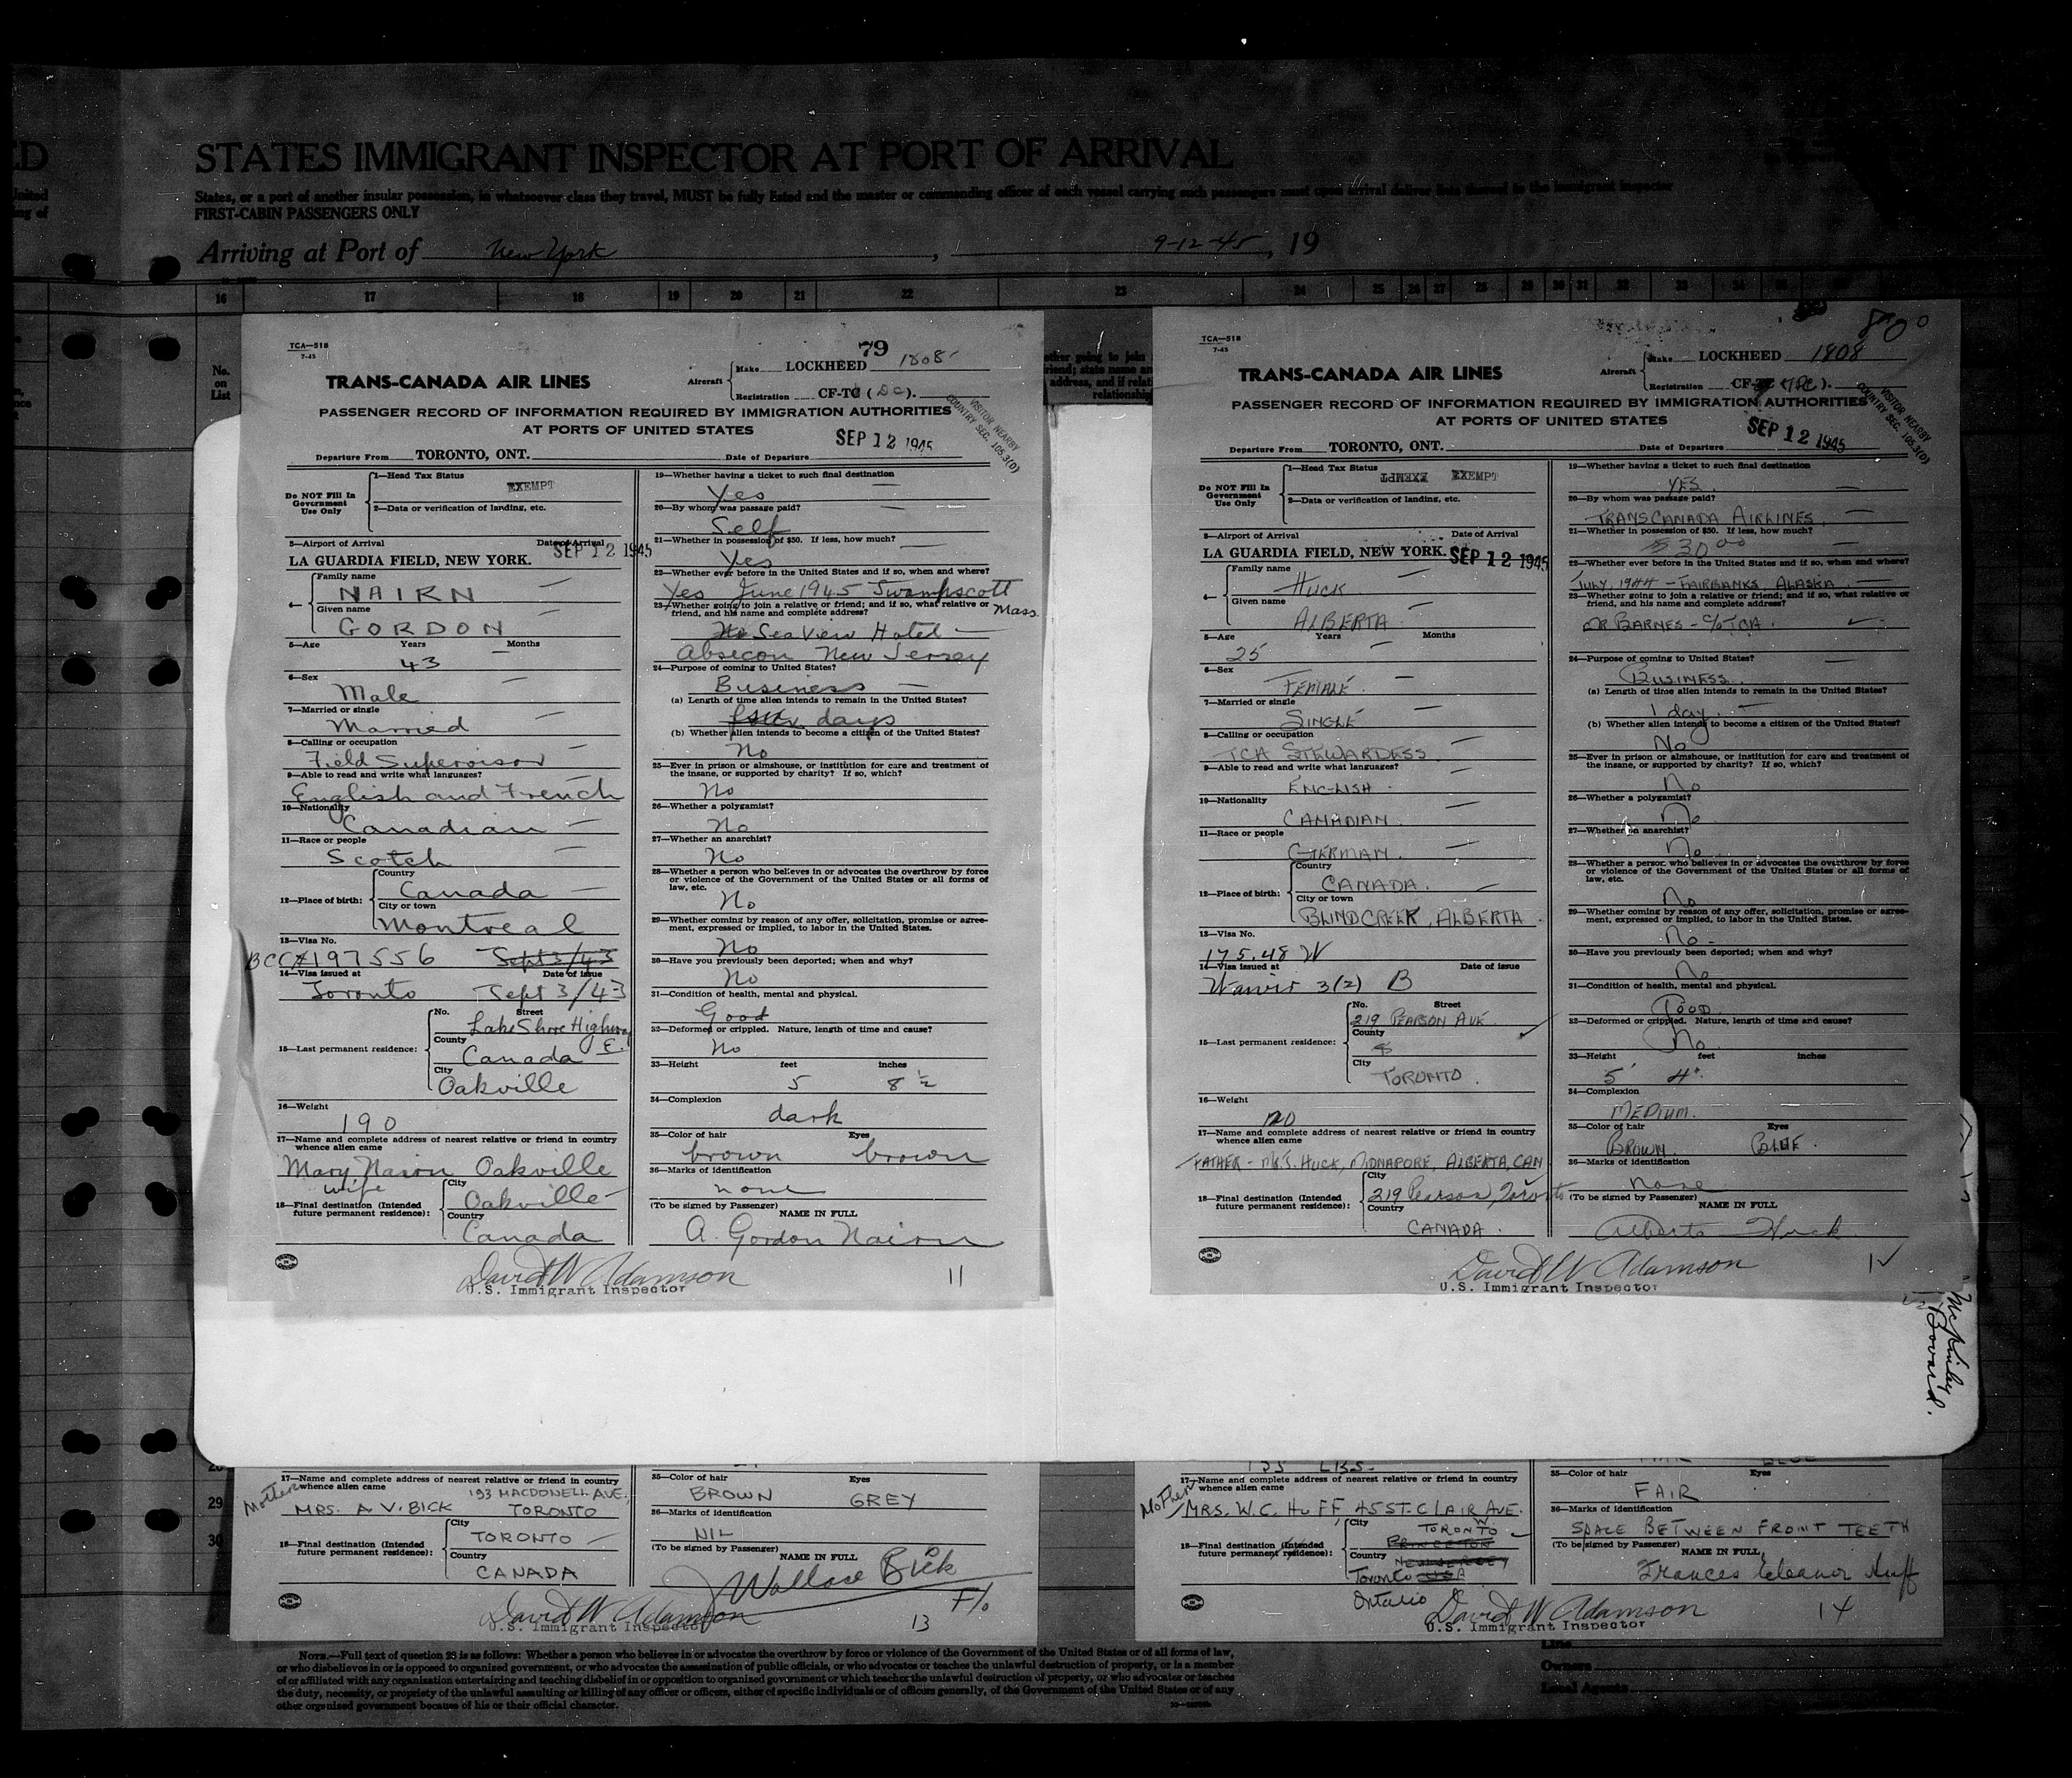 ED
STATES IMMIGRANT INSPECTOR AT PORT OF ARRIVAL
States, or a port of another insular possession, in whatsoever class they travel, MUST be fully listed and the master or commanding officer of each vessel carrying such passengers must upon arrival deliver lists thereof to the immigrant inspector
FIRST-CABIN PASSENGERS ONLY
Arriving at Port of New York, 9-12-45, 19
16 17 18 19 20 21 22 23 24 25 26 27 28 29 30 31 32 33 34
No.
on
List
TCA—518
7-45
79
Aircraft
Make LOCKHEED 1808
Registration CF-TC (DC).
TRANS-CANADA AIR LINES
PASSENGER RECORD OF INFORMATION REQUIRED BY IMMIGRATION AUTHORITIES
AT PORTS OF UNITED STATES
VISITOR NEARBY
COUNTRY SEC. 105.3(D)
SEP 12 1945
Departure From TORONTO, ONT. Date of Departure
Do NOT Fill In
Government
Use Only
1—Head Tax Status
EXEMPT
2—Data or verification of landing, etc.
3—Airport of Arrival Date of Arrival
LA GUARDIA FIELD, NEW YORK. SEP 12 1945
4—
Family name
NAIRN
Given name
GORDON
5—Age Years Months
43
6—Sex
Male
7—Married or single
Married
8—Calling or occupation
Field Supervisor
9—Able to read and write what languages?
English and French
10—Nationality
Canadian
11—Race or people
Scotch
12—Place of birth:
Country
Canada
City or town
Montreal
13—Visa No.
BCC#197556 Sept 3/43
14—Visa issued at Date of issue
Toronto Sept 3/43
15—Last permanent residence:
No. Street
Lake Shore Highway
E.
County
Canada
City
Oakville
16—Weight
190
17—Name and complete address of nearest relative or friend in country
whence alien came
Mary Nairn Oakville
wife
18—Final destination (Intended
future permanent residence):
City
Oakville
Country
Canada
19—Whether having a ticket to such final destination
Yes
20—By whom was passage paid?
Self
21—Whether in possession of $50. If less, how much?
Yes
22—Whether ever before in the United States and if so, when and where?
Yes June 1945 Swampscott
Mass.
23—Whether going to join a relative or friend; and if so, what relative or
friend, and his name and complete address?
No Sea View Hotel
Absecon New Jersey
24—Purpose of coming to United States?
Business
(a) Length of time alien intends to remain in the United States?
few days
(b) Whether alien intends to become a citizen of the United States?
No
25—Ever in prison or almshouse, or institution for care and treatment of
the insane, or supported by charity? If so, which?
No
26—Whether a polygamist?
No
27—Whether an anarchist?
No
28—Whether a person who believes in or advocates the overthrow by force
or violence of the Government of the United States or all forms of
law, etc.
No
29—Whether coming by reason of any offer, solicitation, promise or agree-
ment, expressed or implied, to labor in the United States.
No
30—Have you previously been deported; when and why?
No
31—Condition of health, mental and physical.
Good
32—Deformed or crippled. Nature, length of time and cause?
No
33—Height feet inches
5 8½
34—Complexion
dark
35—Color of hair Eyes
brown brown
36—Marks of identification
none
(To be signed by Passenger)
NAME IN FULL
A. Gordon Nairn
David W Adamson
U.S. Immigrant Inspector
11
TCA—518
7-45
80
Aircraft
Make LOCKHEED 1808
Registration
TRANS-CANADA AIR LINES
PASSENGER RECORD OF INFORMATION REQUIRED BY IMMIGRATION AUTHORITIES
AT PORTS OF UNITED STATES
VISITOR NEARBY
COUNTRY SEC. 105.3(D)
SEP 12 1945
Departure From TORONTO, ONT. Date of Departure
Do NOT Fill In
Government
Use Only
1—Head Tax Status
EXEMPT EXEMPT
2—Data or verification of landing, etc.
3—Airport of Arrival Date of Arrival
LA GUARDIA FIELD, NEW YORK. SEP 12 1945
4—
Family name
HUCK
Given name
ALBERTA
5—Age Years Months
25
6—Sex
FEMALE
7—Married or single
SINGLE
8—Calling or occupation
TCA STEWARDESS
9—Able to read and write what languages?
ENGLISH
10—Nationality
CANADIAN
11—Race or people
GERMAN
12—Place of birth:
Country
CANADA.
City or town
BLINDCREEK, ALBERTA
13—Visa No.
175.48 W
14—Visa issued at Date of issue
3(2) B
15—Last permanent residence:
No. Street
219 PEARSON AVE.
County
City
TORONTO.
16—Weight
17—Name and complete address of nearest relative or friend in country
whence alien came
FATHER - MR. J. HUCK, MIDNAPORE, ALBERTA, CAN
18—Final destination (Intended
future permanent residence):
City
219 Pearson, Toronto
Country
CANADA.
19—Whether having a ticket to such final destination
YES.
20—By whom was passage paid?
TRANSCANADA AIRLINES.
21—Whether in possession of $50. If less, how much?
$30.00
22—Whether ever before in the United States and if so, when and where?
JULY, 1944 - FAIRBANKS, ALASKA.
23—Whether going to join a relative or friend; and if so, what relative or
friend, and his name and complete address?
MR BARNES - C/O TCA.
24—Purpose of coming to United States?
BUSINESS.
(a) Length of time alien intends to remain in the United States?
1 day.
(b) Whether alien intends to become a citizen of the United States?
No
25—Ever in prison or almshouse, or institution for care and treatment of
the insane, or supported by charity? If so, which?
No
26—Whether a polygamist?
No
27—Whether an anarchist?
No
28—Whether a person who believes in or advocates the overthrow by force
or violence of the Government of the United States or all forms of
law, etc.
No
29—Whether coming by reason of any offer, solicitation, promise or agree-
ment, expressed or implied, to labor in the United States.
No.
30—Have you previously been deported; when and why?
No
31—Condition of health, mental and physical.
GOOD.
32—Deformed or crippled. Nature, length of time and cause?
No.
33—Height feet inches
5' 4".
34—Complexion
MEDIUM.
35—Color of hair Eyes
BROWN. BLUE.
36—Marks of identification
none
(To be signed by Passenger)
NAME IN FULL
Alberta Huck
David W Adamson
U.S. Immigrant Inspector
McKinley
Bovard.
29
30
17—Name and complete address of nearest relative or friend in country
whence alien came
Mother 193 MACDONELL AVE.,
MRS. A V. BICK TORONTO
18—Final destination (Intended
future permanent residence):
City
TORONTO
Country
CANADA
35—Color of hair Eyes
BROWN GREY
36—Marks of identification
NIL
(To be signed by Passenger)
NAME IN FULL
Wallace Bick
F/o
David W Adamson
U.S. Immigrant Inspector
13
LBS.
17—Name and complete address of nearest relative or friend in country
whence alien came
Mother
MRS. W.C. HUFF, 45 ST. CLAIR AVE.
W.
18—Final destination (Intended
future permanent residence):
City
TORONTO
PRINCETON
Country
NEW JERSEY
Toronto USA
Ontario
35—Color of hair Eyes
FAIR
36—Marks of identification
SPACE BETWEEN FRONT TEETH
(To be signed by Passenger)
NAME IN FULL
Frances Eleanor Huff
David W Adamson
U.S. Immigrant Inspector
14
NOTE.—Full text of question 28 is as follows: Whether a person who believes in or advocates the overthrow by force or violence of the Government of the United States or of all forms of law,
or who disbelieves in or is opposed to organized government, or who advocates the assassination of public officials, or who advocates or teaches the unlawful destruction of property, or is a member
of or affiliated with any organization entertaining and teaching disbelief in or opposition to organized government or which teaches the unlawful destruction of property, or who advocates or teaches
the duty, necessity, or propriety of the unlawful assaulting or killing of any officer or officers, either of specific individuals or of officers generally, of the Government of the United States or of any
other organized government because of his or their official character.
Line
Owners
Local Agents